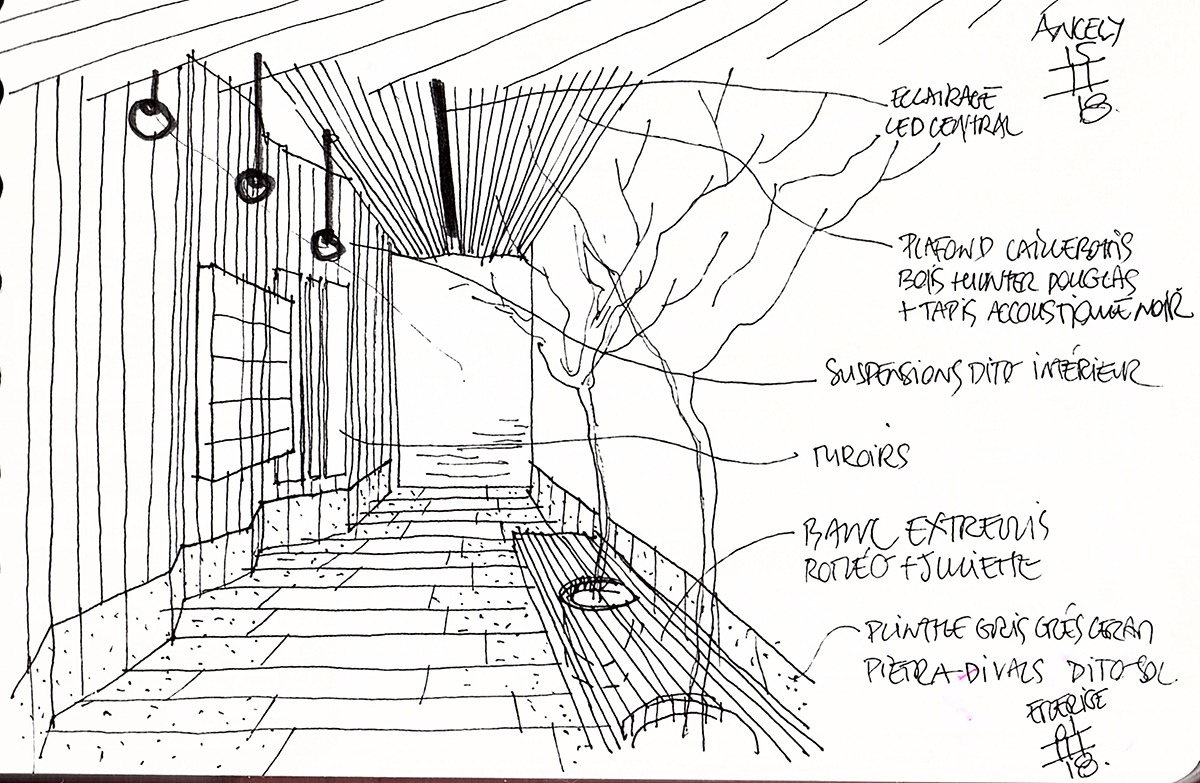 ANCELY
15
11
18.
ECLAIRAGE
LED CENTRAL
PLAFOND CAILLEBOTIS
BOIS HUNTER DOUGLAS
+ TAPIS ACCOUSTIQUE NOIR
SUSPENSIONS DITO INTÉRIEUR
MIROIRS
BANC EXTREMIS
ROMÉO + JULIETTE
PLINTHE GRIS GRÉS CERAM
PIETRA DI VALS DITO SOL.
18.